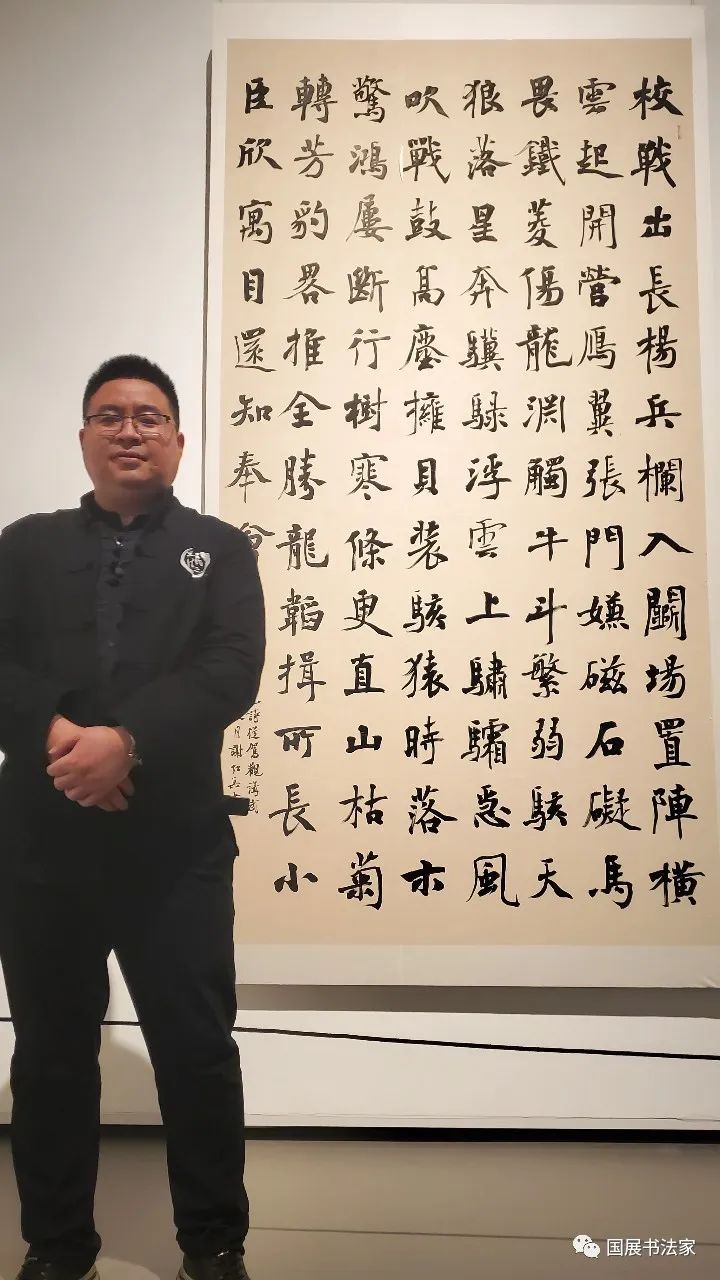 校戰出長楊兵欄入鬭場置陣橫
雲起開營鴈翼張門嫌磁石礙馬
畏鐵菱傷龍淵觸牛斗繁弱駭天
狼落星奔驥騄浮雲上驌驦急風
吹戰鼓高塵擁貝裝駭猿時落木
驚鴻屢斷行樹寒條更直山枯菊
轉芳豹畧推全勝龍韜揖所長小
臣欣寓目還知奉
詩從駕觀講武
月謝紅
国展书法家